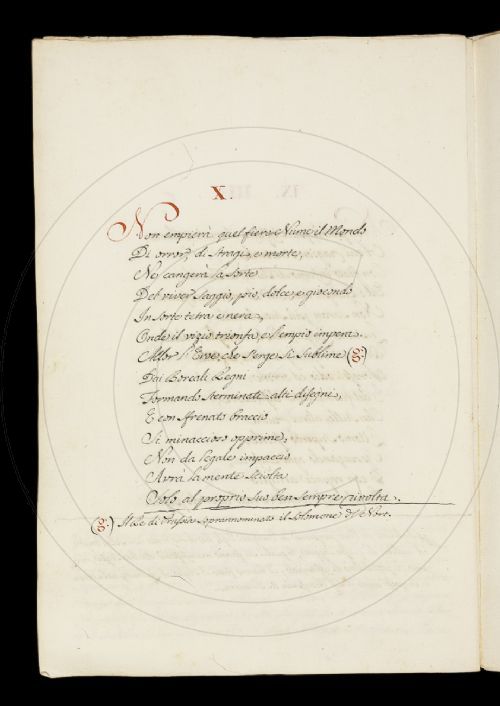 X.
Non empierà quel fiero Nume il Mondo
Di orror, di stragi, e morte,
Nè cangerà la sorte
Del viver saggio, pio, dolce, e giocondo
In sorte tetra e nera,
Onde il vizio trionfa, e l'empio impera.
Allor l'Eroe, che s'erge sì sublime (g.)
Dai Boreali Regni
Formando sterminati alti disegni,
E con sfrenato braccio
Si minaccioso opprime,
Non da legale impaccio
Avrà la mente sciolta
Solo al proprio suo ben sempre rivolta.
(g.) Il Re di Prussia soprannominato il Solomone del Nort.